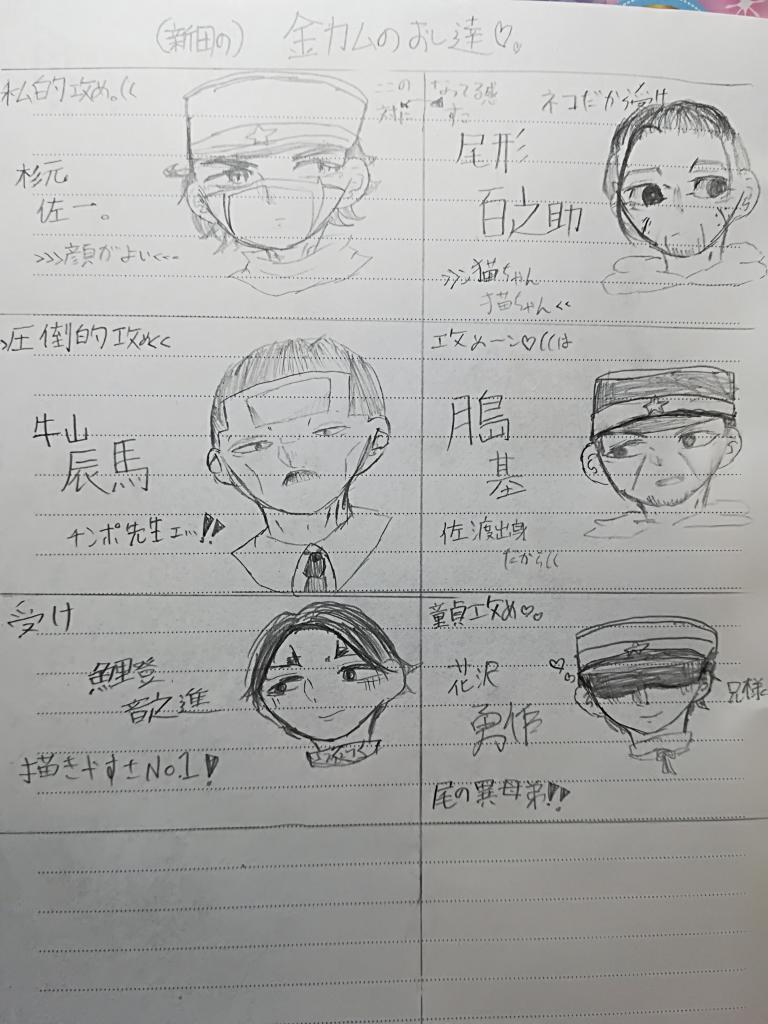 (新田の) 金カムのおし達♡。
私的攻め。((
杉元
佐一。
>>>顔がよい<<<
この
対に
なってる感
すこ
ネコだから受け
尾形
百之助
>>>猫ちゃん
猫ちゃん<<
>圧倒的攻め<<
牛山
辰馬
チンポ先生ェ…!!
攻めーン♡((は
月島
基
佐渡出身
だから((
受け
鯉登
音之進
描きやすさNo.1!
童貞攻め♡。
花沢
勇作
兄様
尾の異母弟!!